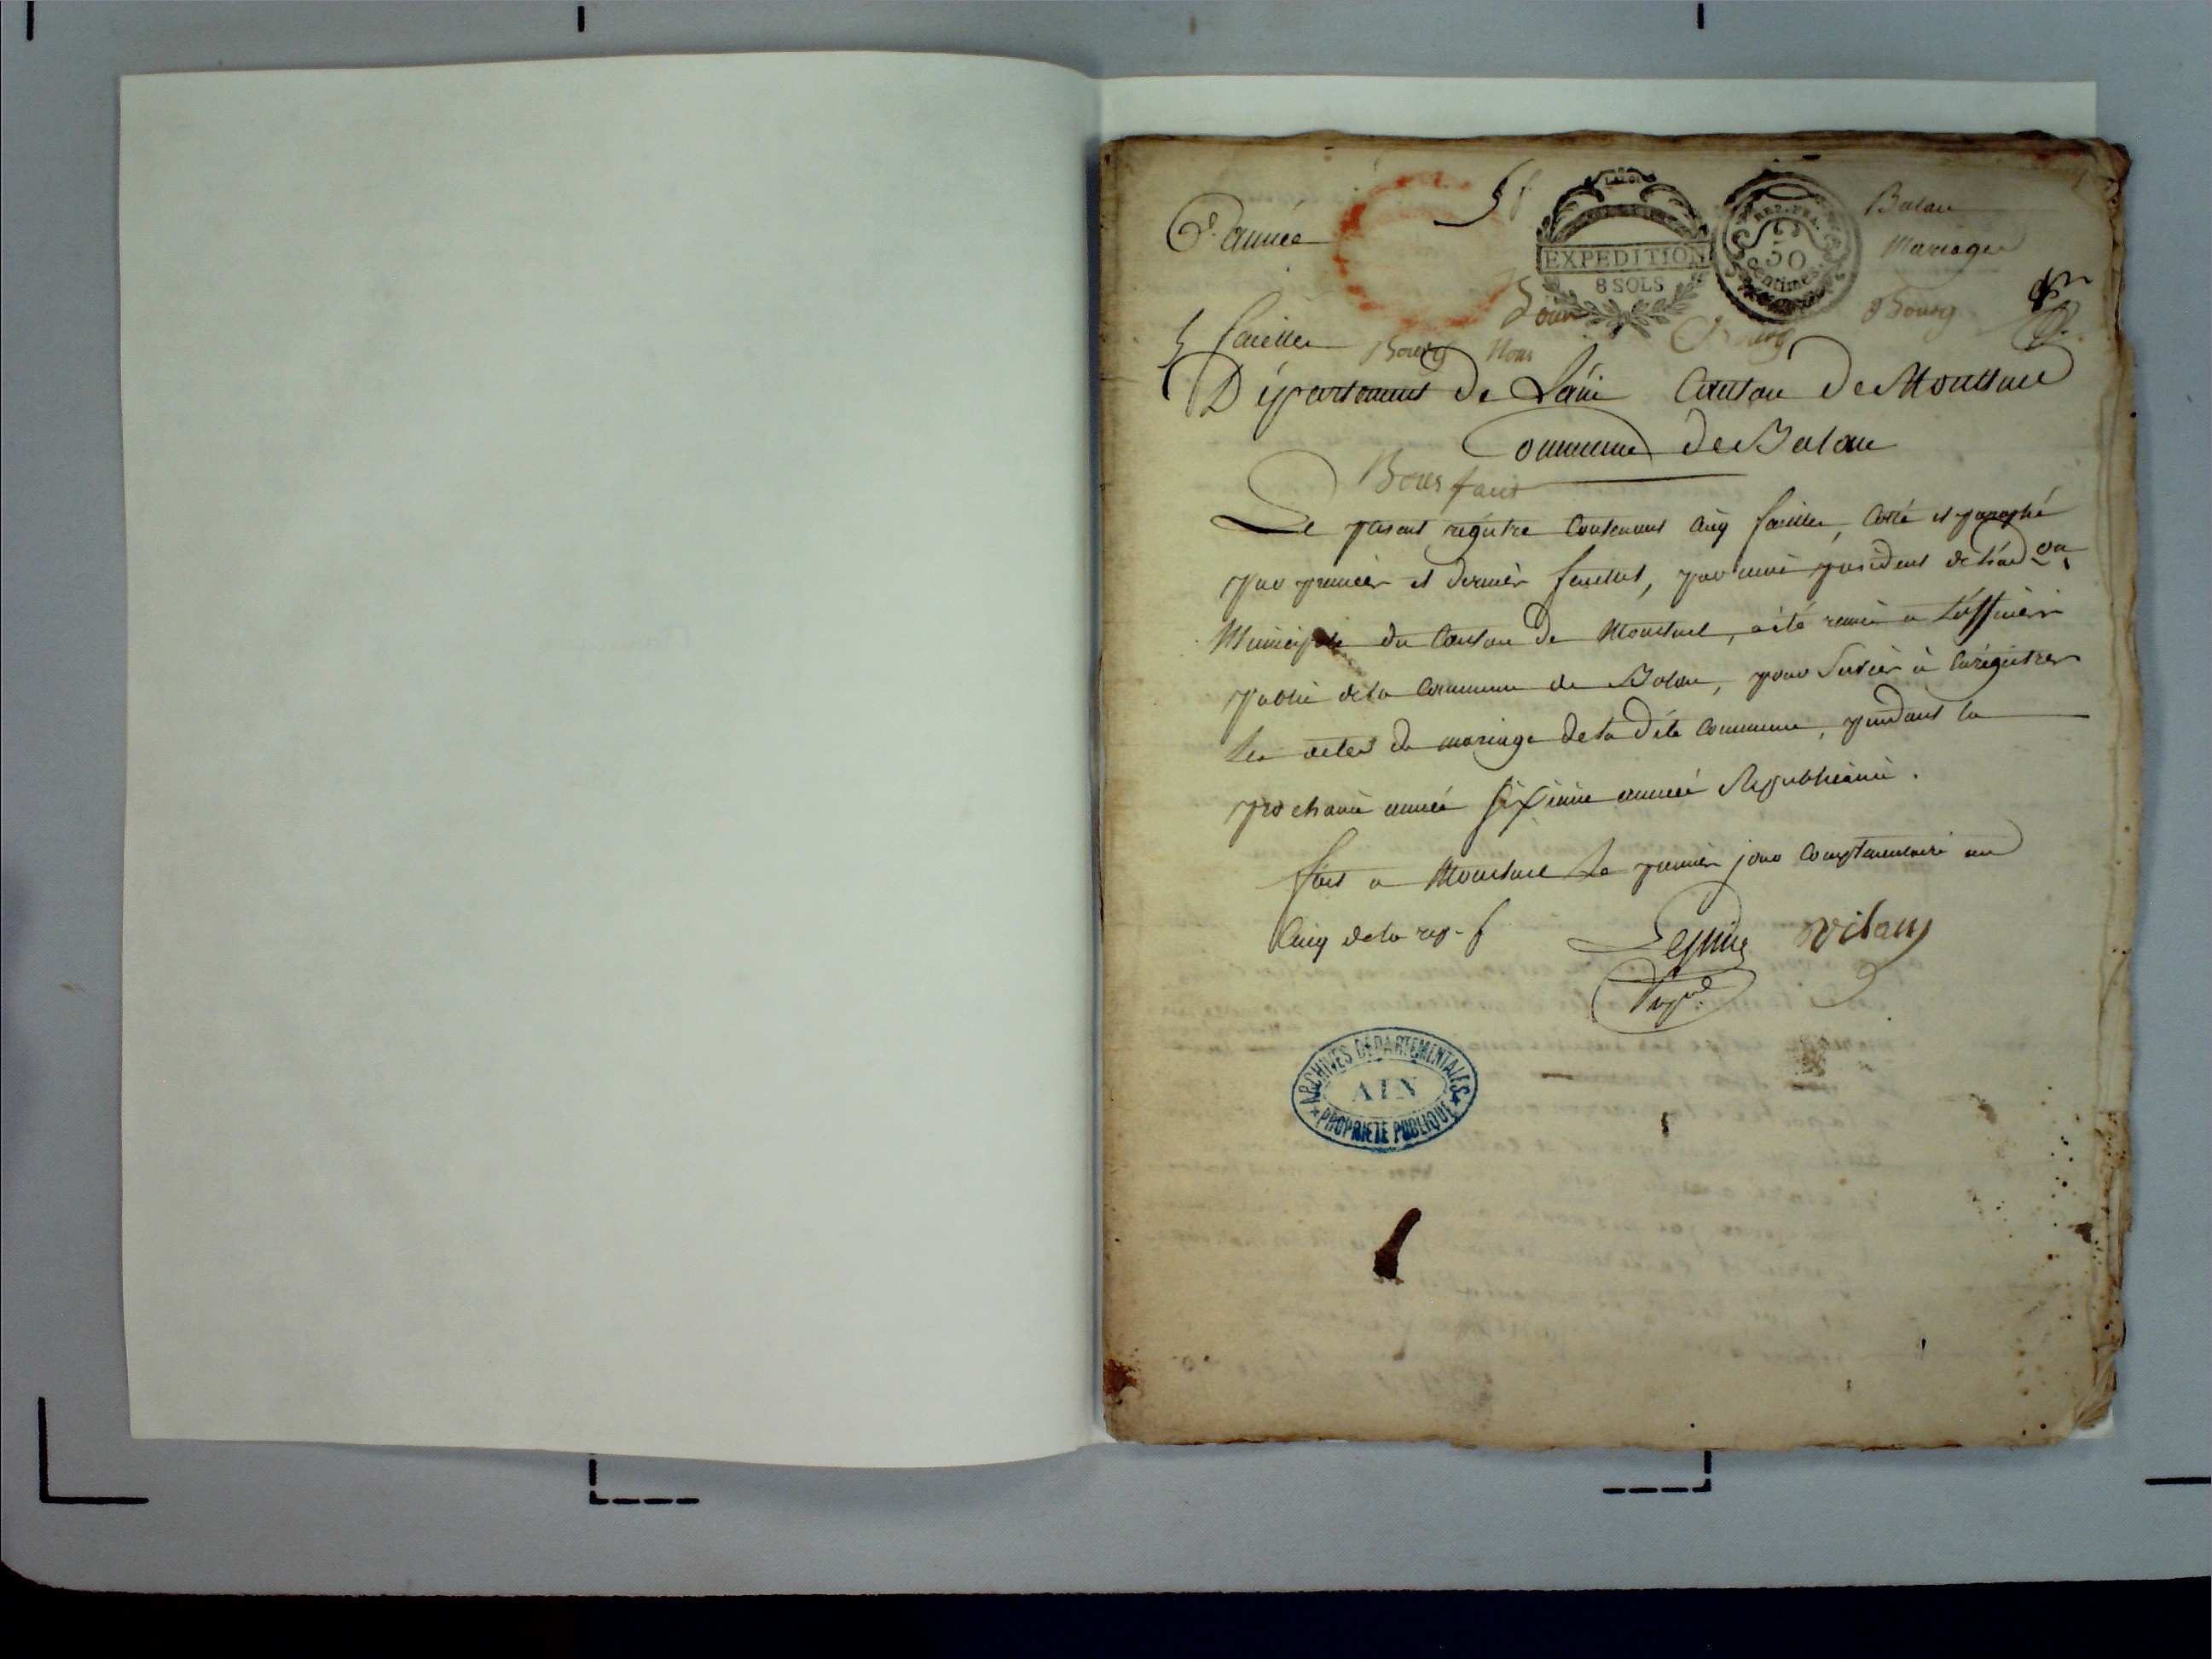 6e. année
5 f
LA LOI
EXPEDITION
8 SOLS
REP. FRA.
50
centimes
Balan
Mariages
Bourg
5 faeilles
Bourg
Département de Lain Canton de Montluel
Commune de Balan
Le présent régistre Contenant Cinq faeilles, Cotté et paraphé
par premier et dernier feuillet, par moi président de l'ad.on
Municipale du Canton de Montluel, a été remis a L'officier
Public de la Commune de Balan, pour Servir à Enrégistrer
les actes de mariage de la dite Commune, pendant la
prochaine année sixième année Republicaine.
fait a Montluel le premier jour Complementaire an
Cinq de la rep. f
ARCHIVES DÉPARTEMENTALES
AIN
PROPRIÉTÉ PUBLIQUE